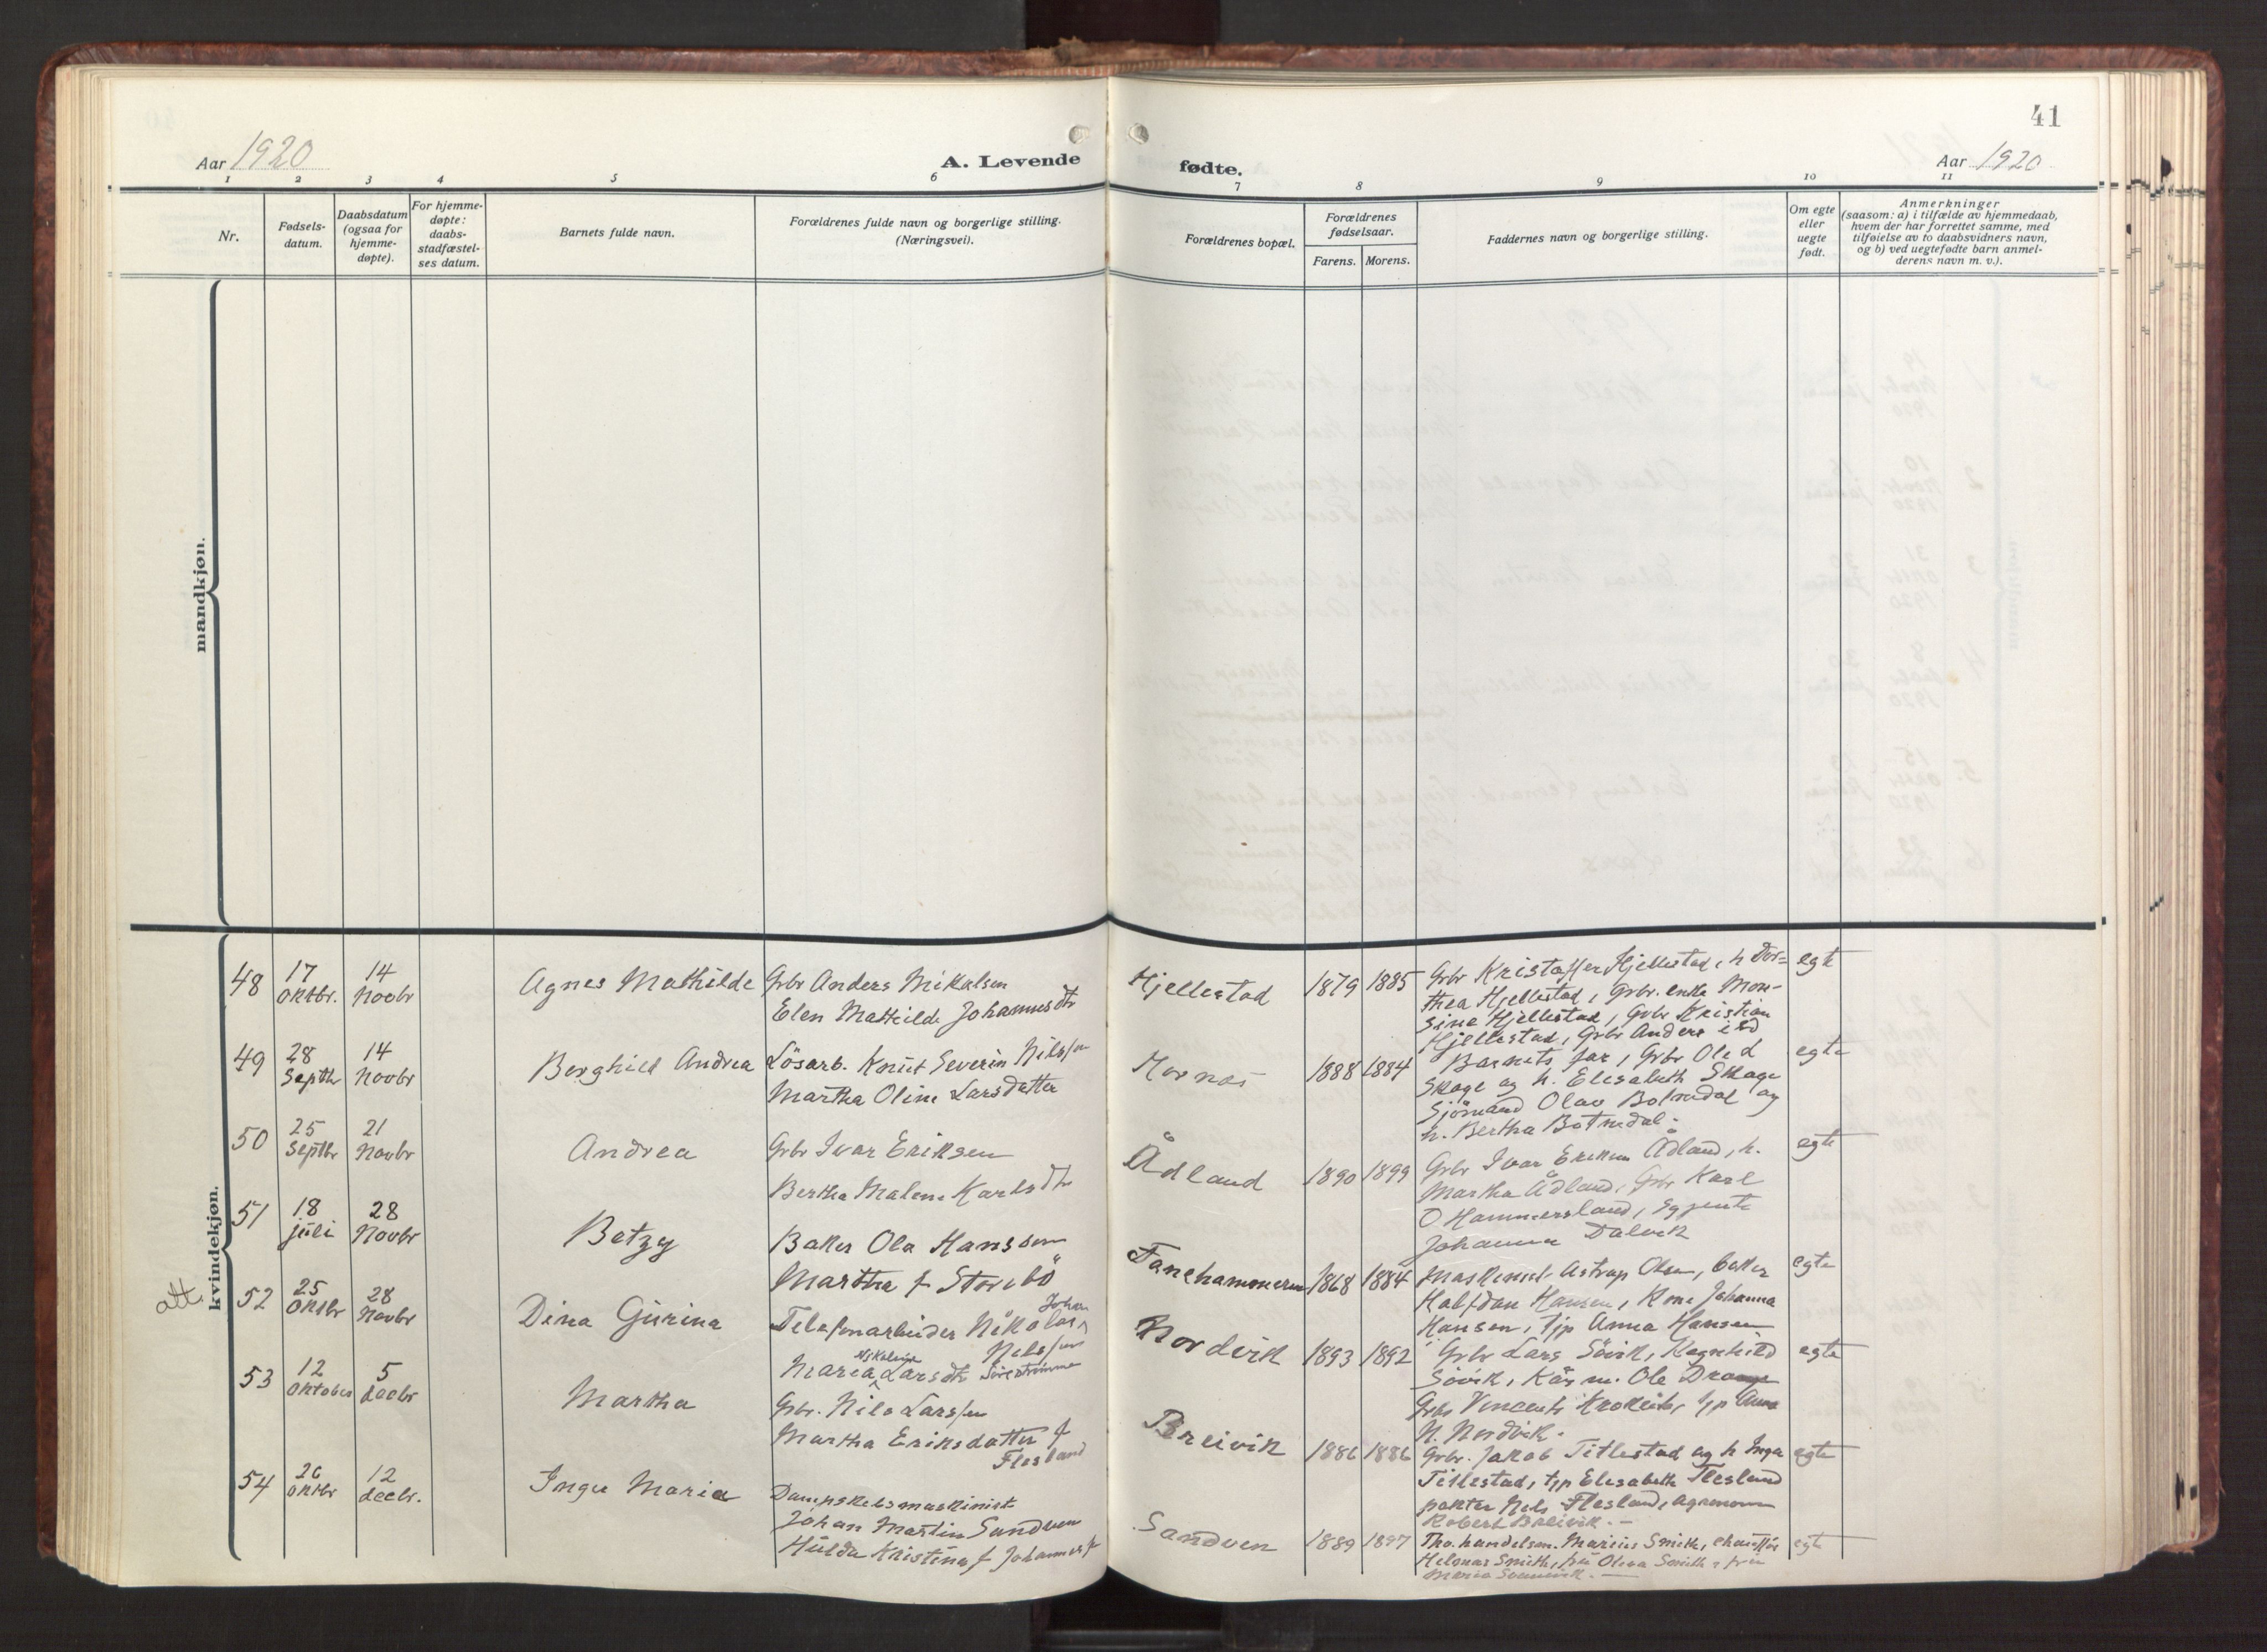 41
Aar 1920
A. Levende
fødte.
Aar 1920
1 2 3 4 5 6 7 8 9 10 11
Nr.
Fødsels-
datum.
Daabsdatum
(ogsaa for
hjemme-
døpte).
For hjemme-
døpte:
daabs-
stadfæstel-
ses datum.
Barnets fulde navn.
Forældrenes fulde navn og borgerlige stilling.
(Næringsvei).
Forældrenes bopæl.
Forældrenes
fødselsaar.
Farens. Morens.
Faddernes navn og borgerlige stilling.
Om egte
eller
uegte
født.
Anmerkninger
(saasom: a) i tilfælde av hjemmedaab,
hvem der har forrettet samme, med
tilføielse av to daabsvidners navn,
og b) ved uegtefødte barn anmel-
derens navn m. v.).
mandkjøn.
kvindekjøn.
att.
48
17
Oktbr.
14
Novbr
Agnes Mathilde
Grbr Anders Mikalsen
Elen Mathilde Johannesdtr
Hjellestad
1879 1885
Grbr Kristoffer Hjellestad, h Dor=
thea Hjellestad, Grbr. enke Mon-
sine Hjellestad, Grbr Kristian
Hjellestad, Grbr Anders
egte
49
28
Septbr
14
Novbr
Borghild Andrea
Lösarb. Knut Severin Nilssen
Martha Oline Larsdatter
Hornæs
1888 1884
Barnets far, Grbr Ole L
Skage og h. Elesabeth Skage
Sjömand Olav Botnedal og
h. Bertha Botnedal.
egte
50
25
Septbr
21
Novbr
Andrea
Grbr Ivar Eriksen
Bertha Malene Karlsdtr
Ådland
1890 1899
Grbr Ivar Eriksen Ådland, h.
Martha Ådland, Grbr Karl
O Hammersland,
Johanna Dalvik
egte
51
18
juli
28
Novbr
Betzy
Baker Ola Hanssen
Martha f Storebö
Fanehammeren
1868 1884
Maskinist Astrup Olsen, baker
Halfdan Hansen, Kone Johanna
Hansen, tjp Anna Hansen
egte
52
25
Oktbr
28
Novbr
Dina Gurina
Telefonarbeider Nikolai Johan
Nilssen
Maria Nikolina Larsdtr
Nordvik
1893 1892
Grbr Lars Sövik, Ragnhild
Sövik, Kåm. Ole
Grbr Vincents Krokeide, tjp Anna
N. Nordvik.
egte
53
12
Oktober
5
Decbr
Martha
Grbr. Nils Larssen
Martha Eriksdatter f
Flesland
Breivik
1886 1886
Grbr. Jakob Titlestad og h Inga
Titlestad, tjp Elesabeth Flesland
Nils Flesland, Agronom
Robert Breivik. -
egte
54
26
Oktbr
12
Decbr.
Inga Maria
Dampskibsmaskinist
Johan Martin Sandven
Hulda Kristina f Johannesse
Sandven
1889 1897
Tho. handelsm. Marius Smith, chauffør
Smith, fru Olava Smith, fru
Maria
egte